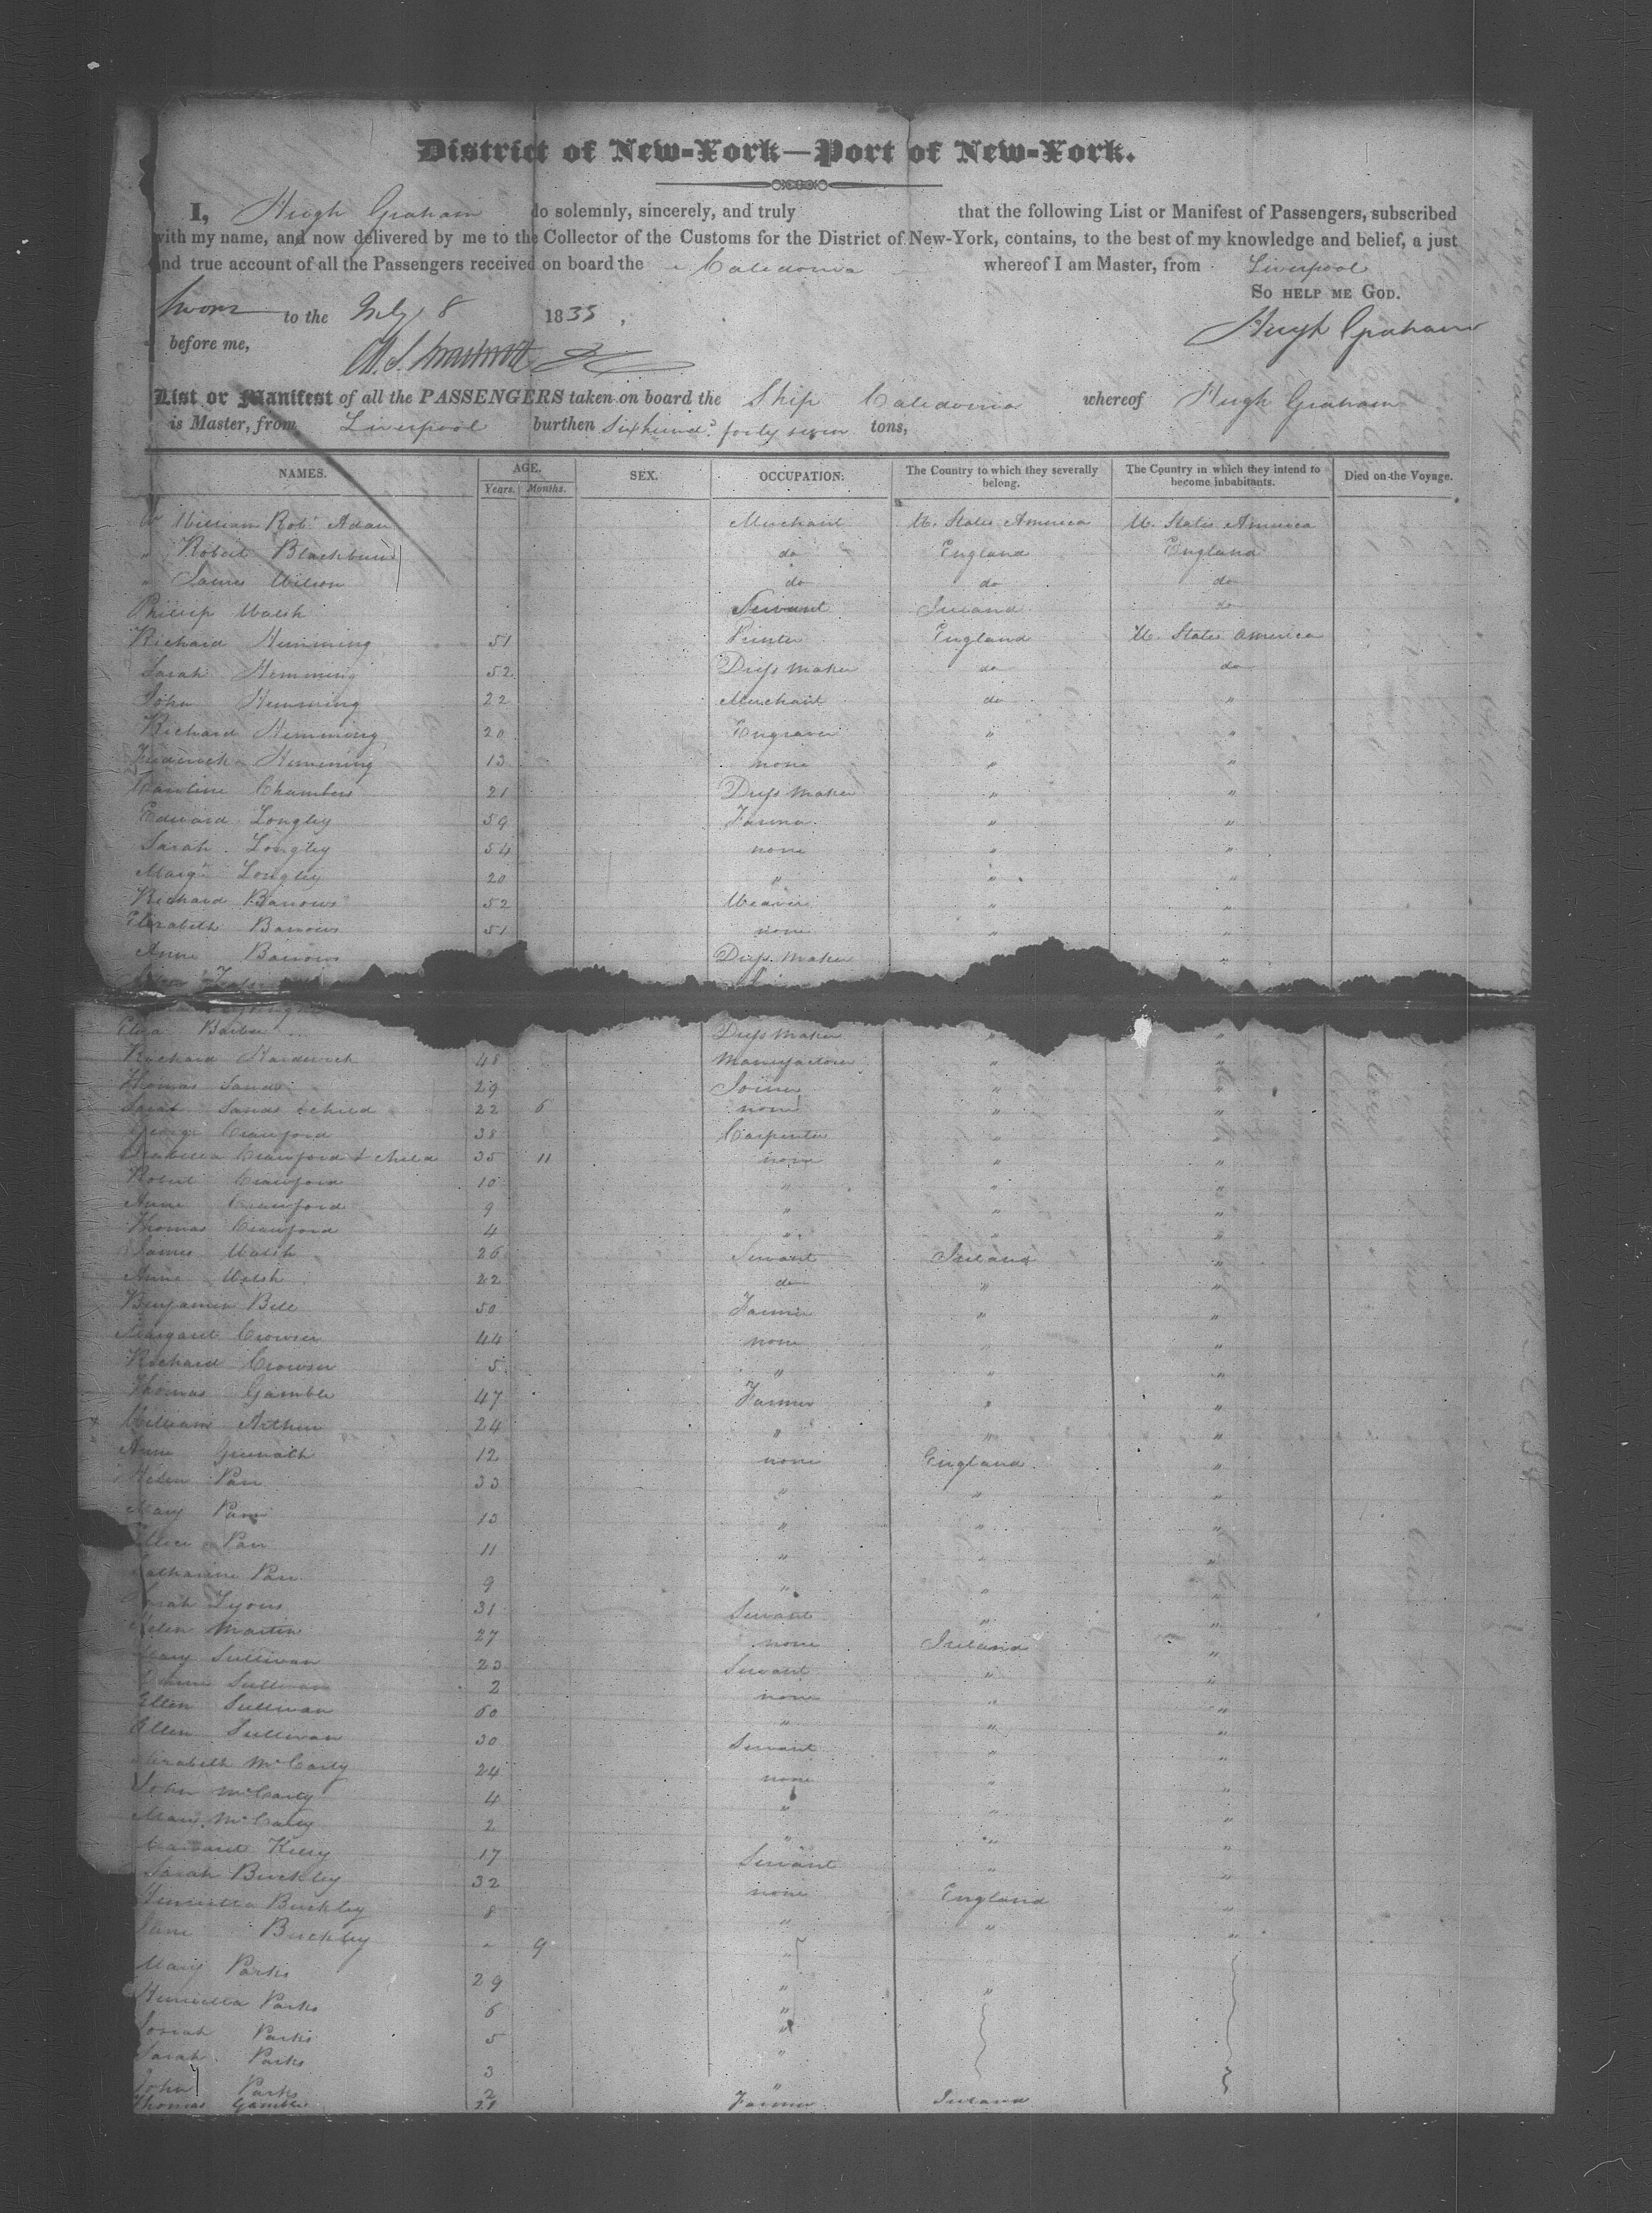 District of New-York—Port of New-York.
I, Hugh Graham do solemnly, sincerely, and truly that the following List or Manifest of Passengers, subscribed
with my name, and now delivered by me to the Collector of the Customs for the District of New-York, contains, to the best of my knowledge and belief, a just
and true account of all the Passengers received on board the Caledonia whereof I am Master, from Liverpool
So help me God.
Sworn to the July 8 1835, Hugh Graham
before me,
List or Manifest of all the PASSENGERS taken on board the Ship Caledonia whereof Hugh Graham
is Master, from Liverpool burthen Six hund.d forty seven tons,
NAMES. AGE. SEX. OCCUPATION. The Country to which they severally belong. The Country in which they intend to become inhabitants. Died on the Voyage.
Years. Months.
William Robt Adam Merchant U. States America U. States America
" Robert Blackburn do England England
" James Wilson do do do
Phillip Walsh Servant Ireland do
Richard Hemming 51 Printer England U. States America
Sarah Hemming 52 Dress Maker do do
John Hemming 22 Merchant do "
Richard Hemming 20 Engraver " "
Frederick Hemming 13 none " "
Caroline Chambers 21 Dress Maker " "
Edward Longley 59 Farmer " "
Sarah Longley 54 none " "
Margt Longley 20 " " "
Richard Barrows 52 Weaver " "
Elizabeth Barrows 51 none " "
Anne Barrows Dress Maker "
Eliza Barber Dress Maker " "
Richard Hardwick 48 Manufacturer " "
Thomas Sands 29 Joiner " "
Sarah Sands & child 22 6 none " "
George Crawford 38 Carpenter " "
Isabella Crawford & child 35 11 none " "
Robert Crawford 10 " " "
Anne Crawford 9 " " "
Thomas Crawford 4 " " "
James Walsh 26 Servant Ireland "
Anne Welsh 22 do " "
Benjamin Bell 50 Farmer " "
Margaret Crowser 44 none " "
Richard Crowser 5 " " "
Thomas Gamble 47 Farmer " "
William Arthur 24 " " "
Anne 12 none England "
Helen Parr 33 " " "
Mary Parr 13 " " "
Alice Parr 11 " " "
Catharine Parr 9 " " "
Sarah Lyons 31 Servant " "
Helen Martin 27 none Ireland "
Mary Sullivan 23 Servant " "
Sullivan 2 none " "
Ellen Sullivan 60 " " "
Ellen Sullivan 30 Servant " "
Elizabeth McCarty 24 none " "
John McCarty 4 " " "
Mary McCarty 2 " " "
Margaret Kelly 17 Servant " "
Sarah Buckley 32 none England "
Henrietta Buckley 8 " " "
Jane Buckley - 9 "
Mary Parks 29 " "
Henrietta Parks 6 "
Josiah Parks 5 "
Sarah Parks 3 "
John Parks 2 "
Thomas Gamble 21 Farmer Ireland